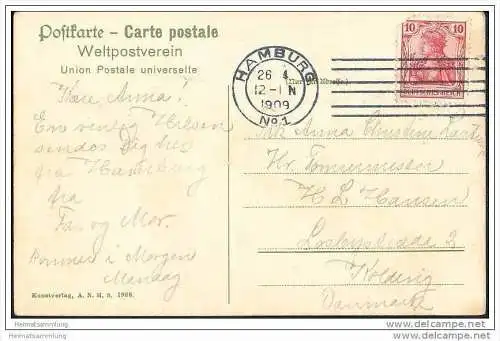 Postkarte – Carte postale
Weltpostverein
Union Postale universelle
HAMBURG
26 4
12-1 N
1909
No 1
10
10
DEUTSCHES REICH
Kære Anna!
En venlig Hilsen
sendes Dig her
fra Hamburg
fra
Far og Mor.
Kommer i Morgen
Mandag
Anna Christine
Hr. Tømmermester
H L Hansen
2
Kolding
Danmark
Kunstverlag, A. N. H. 8. 1908.
Heimatsammlung
Heimatsammlung.de
Heimatsammlung.de